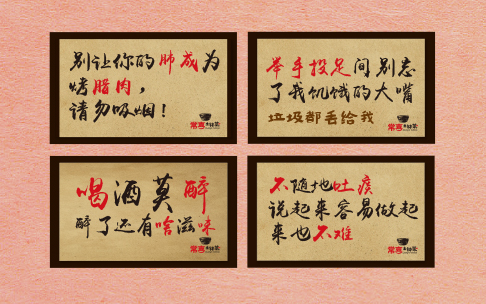 别让你的肺成为
烤腊肉，
请勿吸烟！
常喜
举手投足间别忘
了我饥饿的大嘴
垃圾都丢给我
常喜
喝酒莫醉
醉了还有啥滋味
常喜
不随地吐痰
说起来容易做起
来也不难
常喜